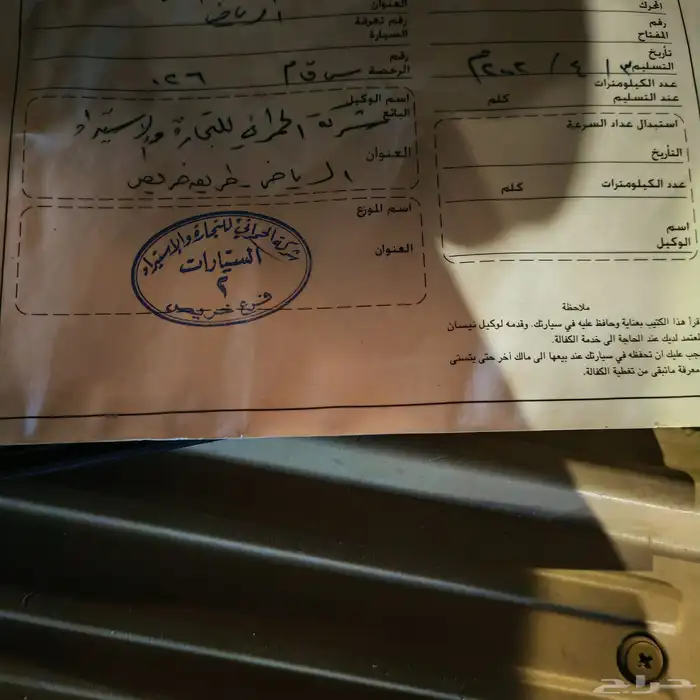 المحرك
رقم
المفتاح
تاريخ
التسليم ٣ / ٤ / ٢٠٠٢م
عدد الكيلومترات
عند التسليم كلم
استبدال عداد السرعة
التأريخ
عدد الكيلومترات كلم
اسم
الوكيل
العنوان الرياض
رقم تعرفة
السيارة
رقم
الرخصة س ق م ٠٢٦
اسم الوكيل
البائع شركة الحمراني للتجارة والإستيراد
العنوان الرياض - طريق خريص
اسم الموزع
العنوان
شركة الحمراني للتجارة والإستيراد
السيارات
٢
فرع خريص
ملاحظة
قرأ هذا الكتيب بعناية وحافظ عليه في سيارتك. وقدمه لوكيل نيسان
لمعتمد لديك عند الحاجة الى خدمة الكفالة.
جب عليك ان تحفظه في سيارتك عند بيعها الى مالك أخر حتى يتسنى
معرفة ماتبقى من تغطية الكفالة.
حراج